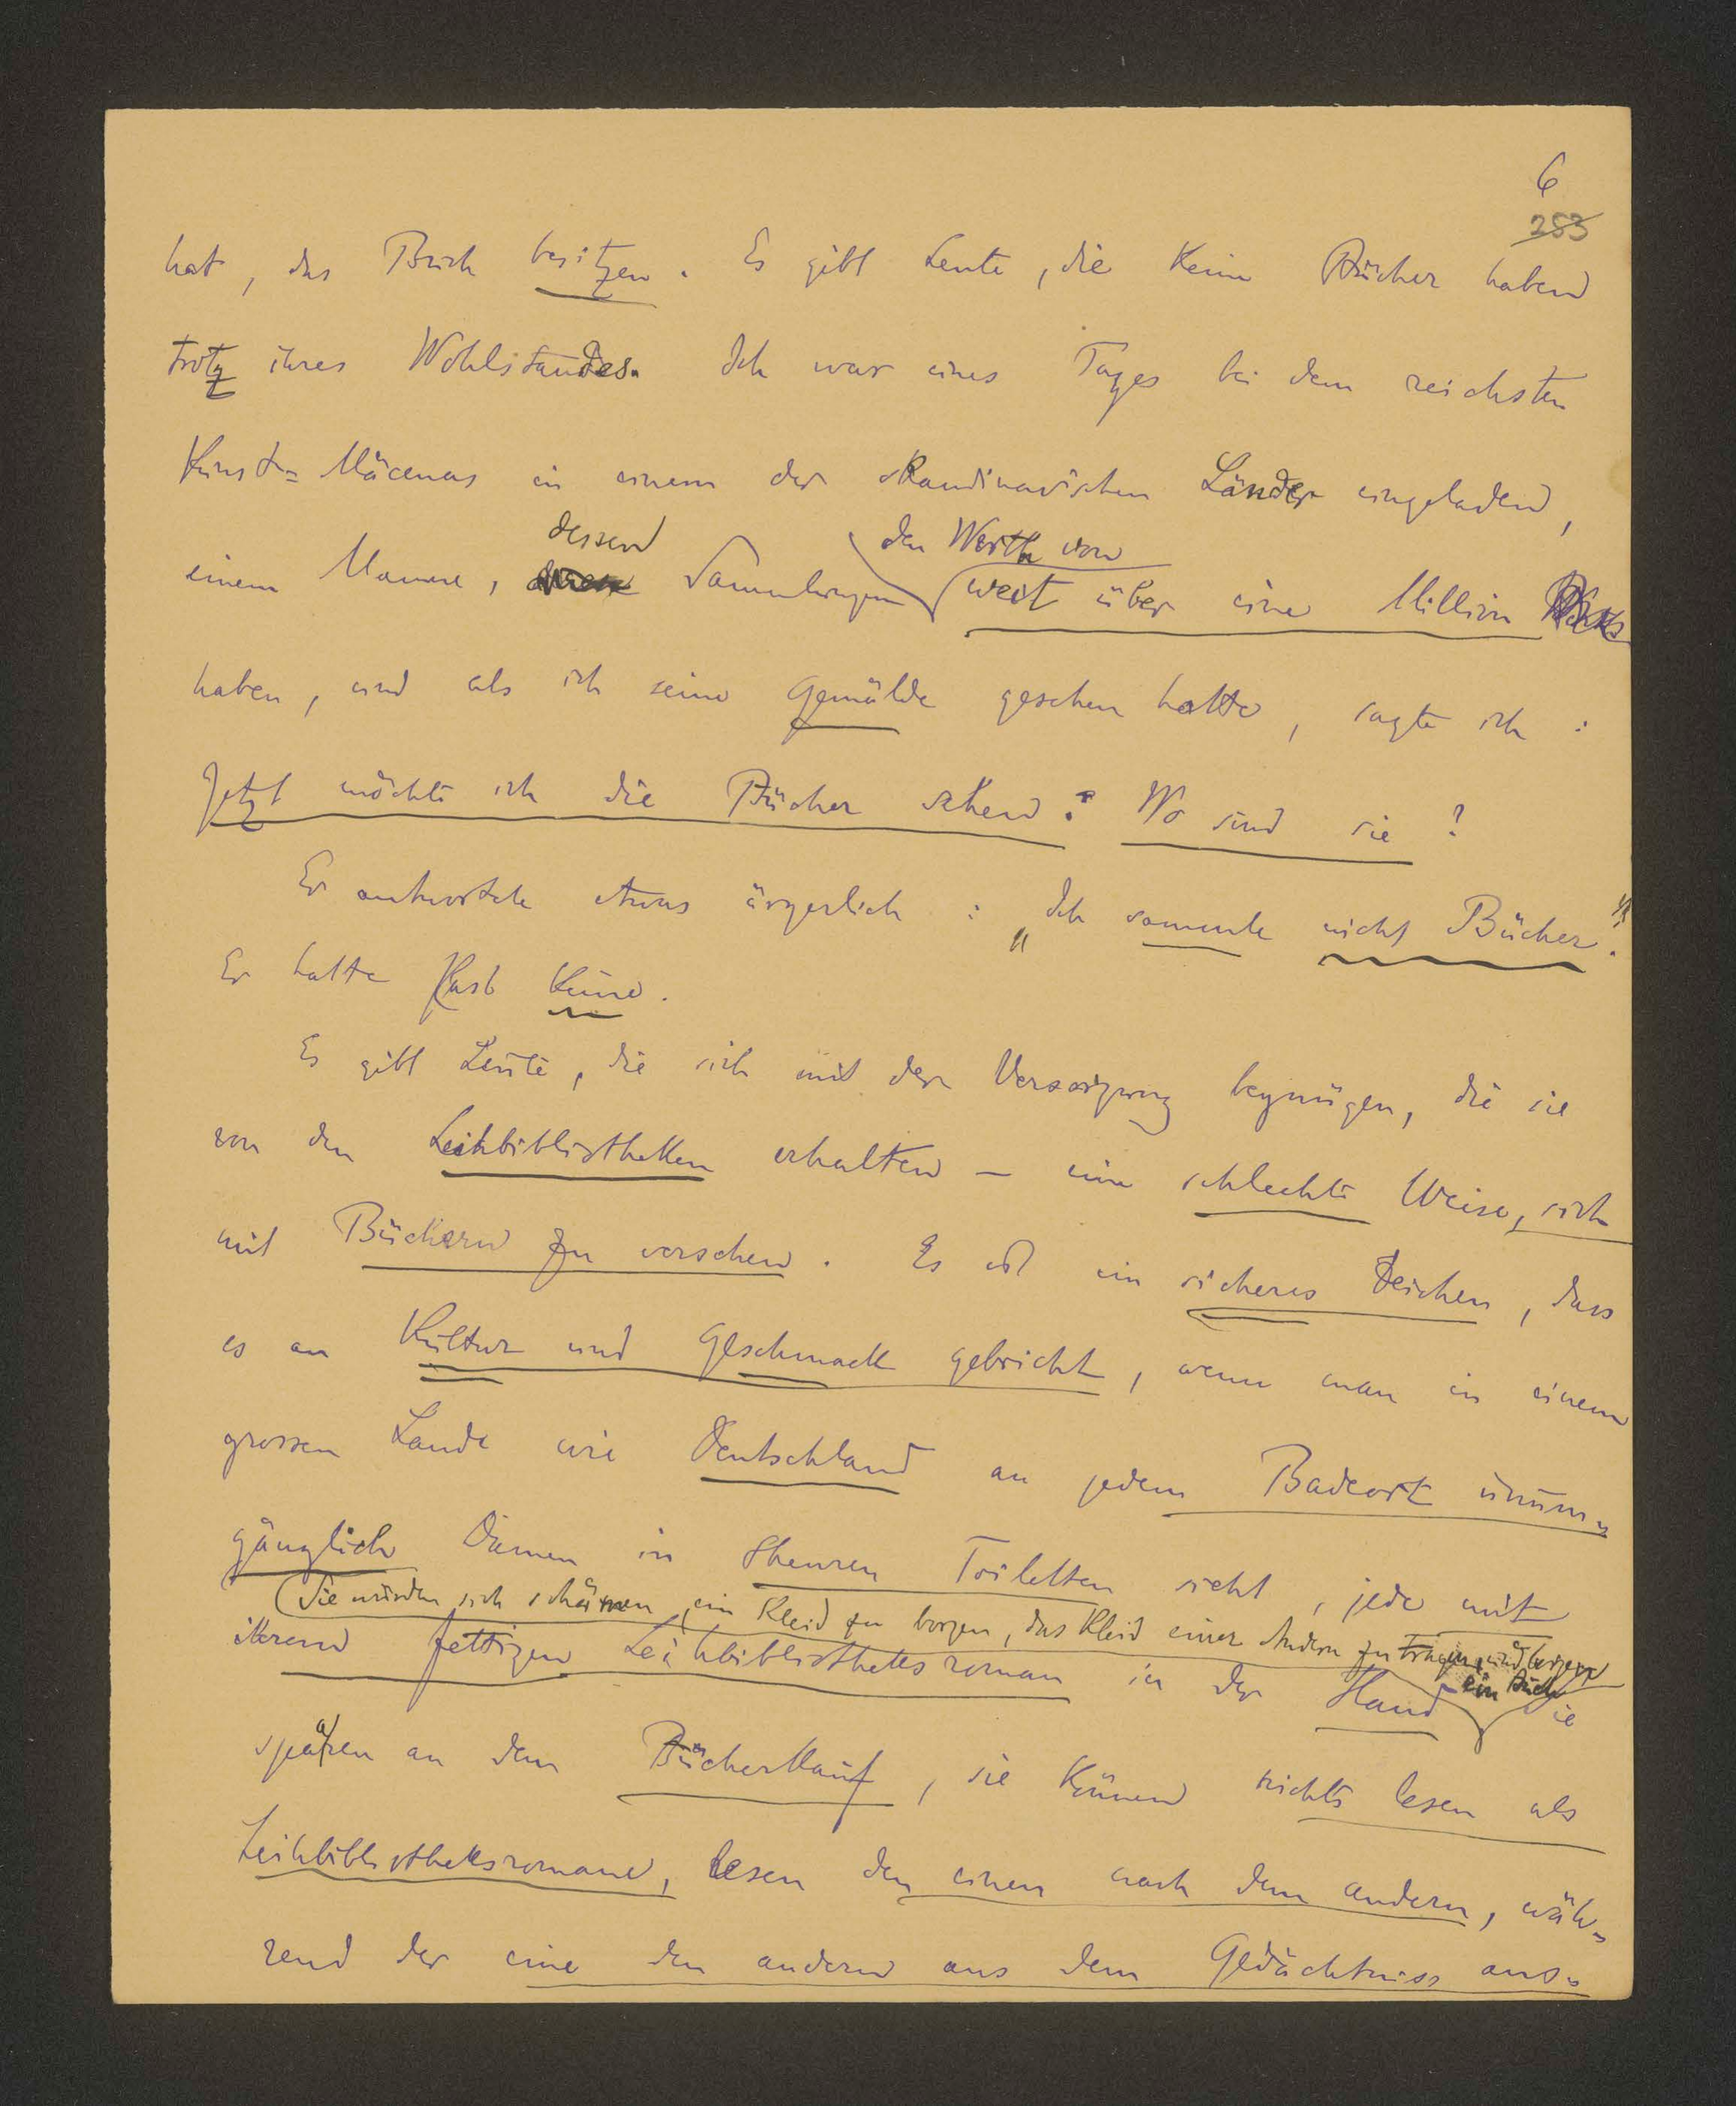 6
253
hat, das Buch besitzen. Es gibt Leute, die keine Bücher haben
trotz ihres Wohlstandes. Ich war eines Tages bei dem reichsten
Kunst=Mäcenas in einem der skandinavischen Länder eingeladen,
dessen den Werth von
einem Manne, Sammlungen weit über eine Million
haben, und als ich seine Gemälde gesehen hatte, sagte ich:
Jetzt möchte ich die Bücher sehen: Wo sind sie?
Er antwortete etwas ärgerlich: „Ich sammle nicht Bücher."
Er hatte fast keine.
Es gibt Leute, die sich mit der Versorgung begnügen, die sie
von den Leihbibliotheken erhalten – eine schlechte Weise, sich
mit Büchern zu versehen. Es ist ein sicheres Zeichen, dass
es an Kultur und Geschmack gebricht, wenn man in einem
grossen Lande wie Deutschland an jedem Badeort unum-
gänglich Damen in theuren Toiletten sieht, jede mit
Sie würden sich schämen, ein Kleid zu borgen, das Kleid einer Andern zu tragen, und borgen
ein Buch
ihrem fettigen Leihbibliotheksroman in der Hand. Sie
sparen an dem Bücherkauf, sie können nichts lesen als
Leihbibliotheksromane, lesen den einen nach dem andern, wäh-
rend der eine den andern aus dem Gedächtniss aus-